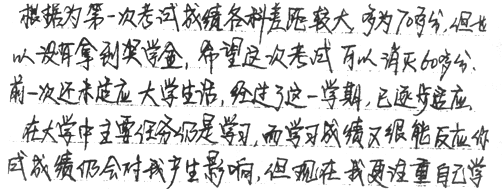 根据为第一次考试成绩各科差距较大，多为70多分，但也
以没有拿到奖学金，希望这次考试可以消灭60多分.
前一次还未适应大学生活，经过了这一学期，已逐步适应.
在大学中主要任务仍是学习，而学习成绩又很能反应你
成绩仍会对我产生影响，但现在我更注重自己学